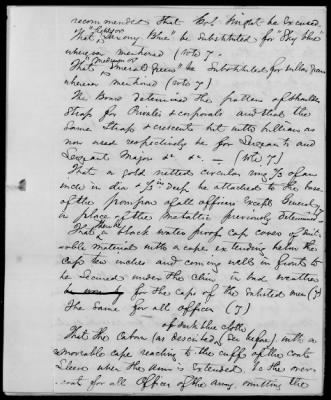 recommended that Col Wright be excused
That "Saxony Blue" be substituted for "Sky blue"
wherever mentioned (vote 7.
That "Medium or Emerald Green" be substituted for
wherever mentioned (vote 7)
The Board determined the pattern of shoulder
Strap for Privates & corporals and that the
same Strap & crescents but with bullions as
now used respectively be for Sergeants and
Sergeant Major &c &c. — (vote 7)
That a gold netted circular ring ⅞ of an
inch in dia & deep be attached to the base
of the pompon of all officers except Generals
in place of the metallic previously determined
That a black water proof cap cover of suit-
able material with a cape extending below the
cap ten inches and coming well in front to
be secured under the chin in bad weather
for the caps of the enlisted men (7)
The same for all officers (7)
of dark blue cloth
That the Caban (as described see before) with a
moveable cape reaching to the cuff of the coat
Sleeve when the arm is extended be the over-
coat for all Officers of the army, omitting the